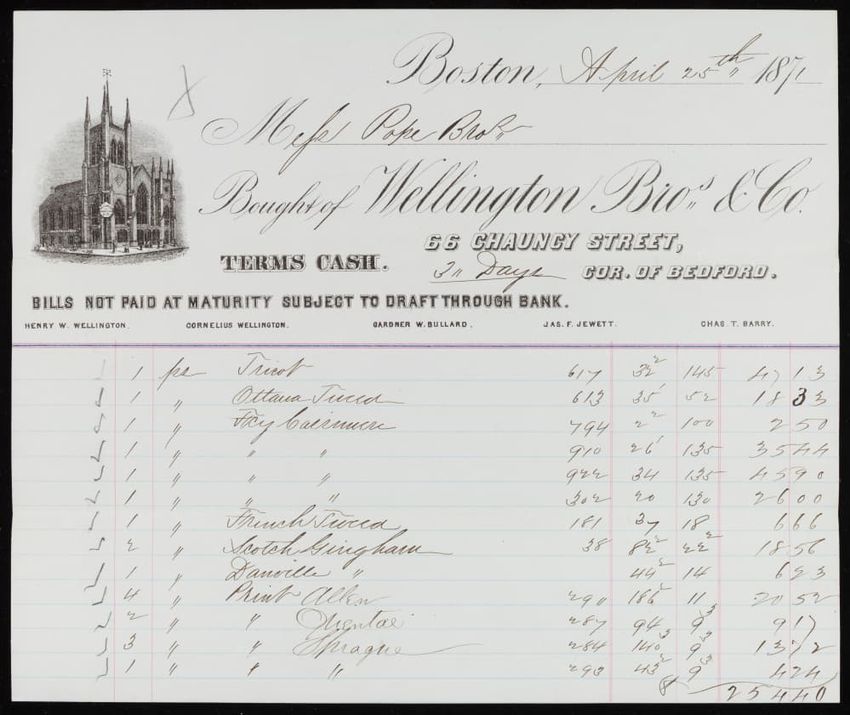 Boston, April 25th 1871
Mess Pope Bros
Bought of Wellington Bros. & Co.
66 CHAUNCY STREET,
TERMS CASH. 3" Days COR. OF BEDFORD.
BILLS NOT PAID AT MATURITY SUBJECT TO DRAFT THROUGH BANK.
HENRY W. WELLINGTON. CORNELIUS WELLINGTON. GARDNER W. BULLARD. JAS. F. JEWETT. CHAS. T. BARRY.
1 ps Tricot 617 32² 145 47 13
1 " Ottawa Tweed 613 35' 52 18 33
1 " Fcy Casimere 794 2² 100 2 50
1 " " " 910 26' 135 35 44
1 " " " 922 34 135 45 90
1 " " " 302 20 130 26 00
1 " French Tweed 181 37 18 6 66
2 " Scotch Gingham 38 82² 22² 18 56
1 " Danville " 44² 14 6 23
4 " Print Allen 290 186² 11 20 52
2 " " 287 94 9³ 9 17
3 " " Sprague 284 140³ 9³ 13 72
1 " " " 293 43² 9³ 4 24
8 254 40